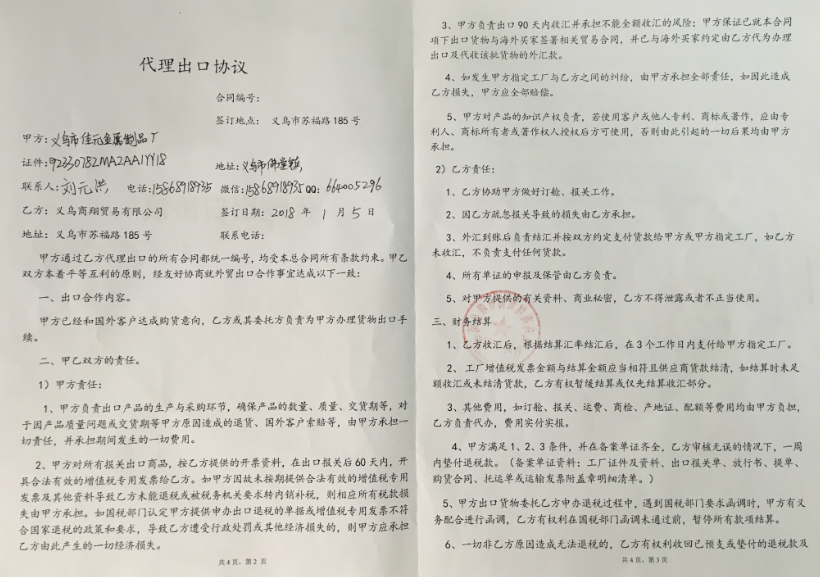 代理出口协议
合同编号：
签订地点： 义乌市苏福路 185 号
甲方：义乌市佳元金属制品厂
证件：92330782MA2AA1YY18 地址：义乌市佛堂镇
联系人：刘元洪 电话：15868918935 微信：15868918935 QQ：664005296
乙方：义乌商翔贸易有限公司 签订日期：2018 年 1 月 5 日
地址：义乌市苏福路 185 号 联系电话：
甲方通过乙方代理出口的所有合同都统一编号，均受本总合同所有条款约束。甲乙
双方本着平等互利的原则，经友好协商就外贸出口合作事宜达成以下一致：
一、出口合作内容。
甲方已经和国外客户达成购货意向，乙方或其委托方负责为甲方办理货物出口手
续。
二、甲乙双方的责任。
1）甲方责任：
1、甲方负责出口产品的生产与采购环节，确保产品的数量、质量、交货期等，对
于因产品质量问题或交货期等甲方原因造成的退货、国外客户索赔等，由甲方承担一
切责任，并承担期间发生的一切费用。
2、甲方对所有报关出口商品，按乙方提供的开票资料，在出口报关后 60 天内，开
具合法有效的增值税专用发票给乙方。如甲方因故未按期提供合法有效的增值税专用
发票及其他资料导致乙方未能退税或被税务机关要求转内销补税，则相应所有税款损
失由甲方承担。如国税部门认定甲方提供申办出口退税的单据或增值税专用发票不符
合国家退税的政策和要求，导致乙方遭受行政处罚或其他经济损失的，则甲方应承担
乙方由此产生的一切经济损失。
共 4 页，第 2 页
3、甲方负责出口 90 天内收汇并承担不能全额收汇的风险；甲方保证已就本合同
项下出口货物与海外买家签署相关贸易合同，并已与海外买家约定由乙方代为办理
出口及代收该批货物的外汇款。
4、如发生甲方指定工厂与乙方之间的纠纷，由甲方承担全部责任，如因此造成
乙方损失，甲方应全部赔偿。
5、甲方对产品的知识产权负责，若使用客户或他人专利、商标或著作，应由专
利人、商标所有者或著作权人授权后方可使用，否则由此引起的一切后果均由甲方
承担。
2）乙方责任：
1、乙方协助甲方做好订舱、报关工作。
2、因乙方疏忽报关导致的损失由乙方承担。
3、外汇到账后负责结汇并按双方约定支付货款给甲方或甲方指定工厂，如乙方
未收汇，不负责支付任何货款。
4、所有单证的申报及保管由乙方负责。
5、对甲方提供的有关资料、商业秘密，乙方不得泄露或者不正当使用。
三、财务结算
1、乙方收汇后，根据结算汇率结汇后，在 3 个工作日内支付给甲方指定工厂。
2、工厂增值税发票金额与结算金额应当相符且供应商货款结清，如结算时未足
额收汇或未结清货款，乙方有权暂缓结算或仅先结算收汇部分。
3、其他费用，如订舱、报关、运费、商检、产地证、配额等费用均由甲方负担，
乙方负责代办，费用实付实报。
4、甲方满足 1、2、3 条件，并在备案单证齐全，乙方审核无误的情况下，一周
内垫付退税款。（备案单证资料：工厂证件及资料、出口报关单、放行书、提单、
购货合同、托运单或运输发票附盖章明细清单。）
5、甲方出口货物委托乙方申办退税过程中，遇到国税部门要求函调时，甲方有义
务配合进行函调，乙方有权利在国税部门函调未通过前，暂停所有款项结算。
6、一切非乙方原因造成无法退税的，乙方有权利收回已预支或垫付的退税款及
共 4 页，第 3 页